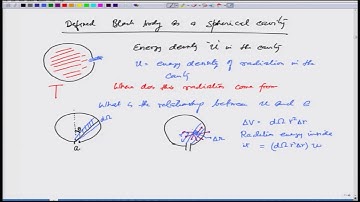 Defined Black body as a spherical cavity
Energy density 'u' in the cavity
u = energy density of radiation in the
cavity
Where does this radiation come from
T
What is the relationship between u and Q
dΩ
ΔV = dΩ r² Δr
Radiation energy inside
Δr
= (dΩ r² Δr) u